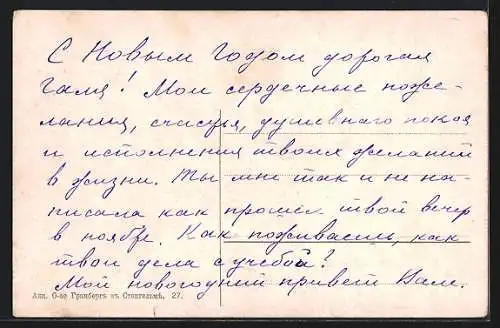 С Новым Годом дорогая
Галя! Мои сердечные поже-
лания, счастья, душевнаго покоя
и исполнения твоих желаний
в жизни. Ты мне так и не на-
писала как прошел твой вечер
в ноябре. Как поживаешь, как
твои дела с учебой?
Мой новогодний привет Вам.
Акц. О-во Гранбергъ въ Стокгольмѣ. 27.